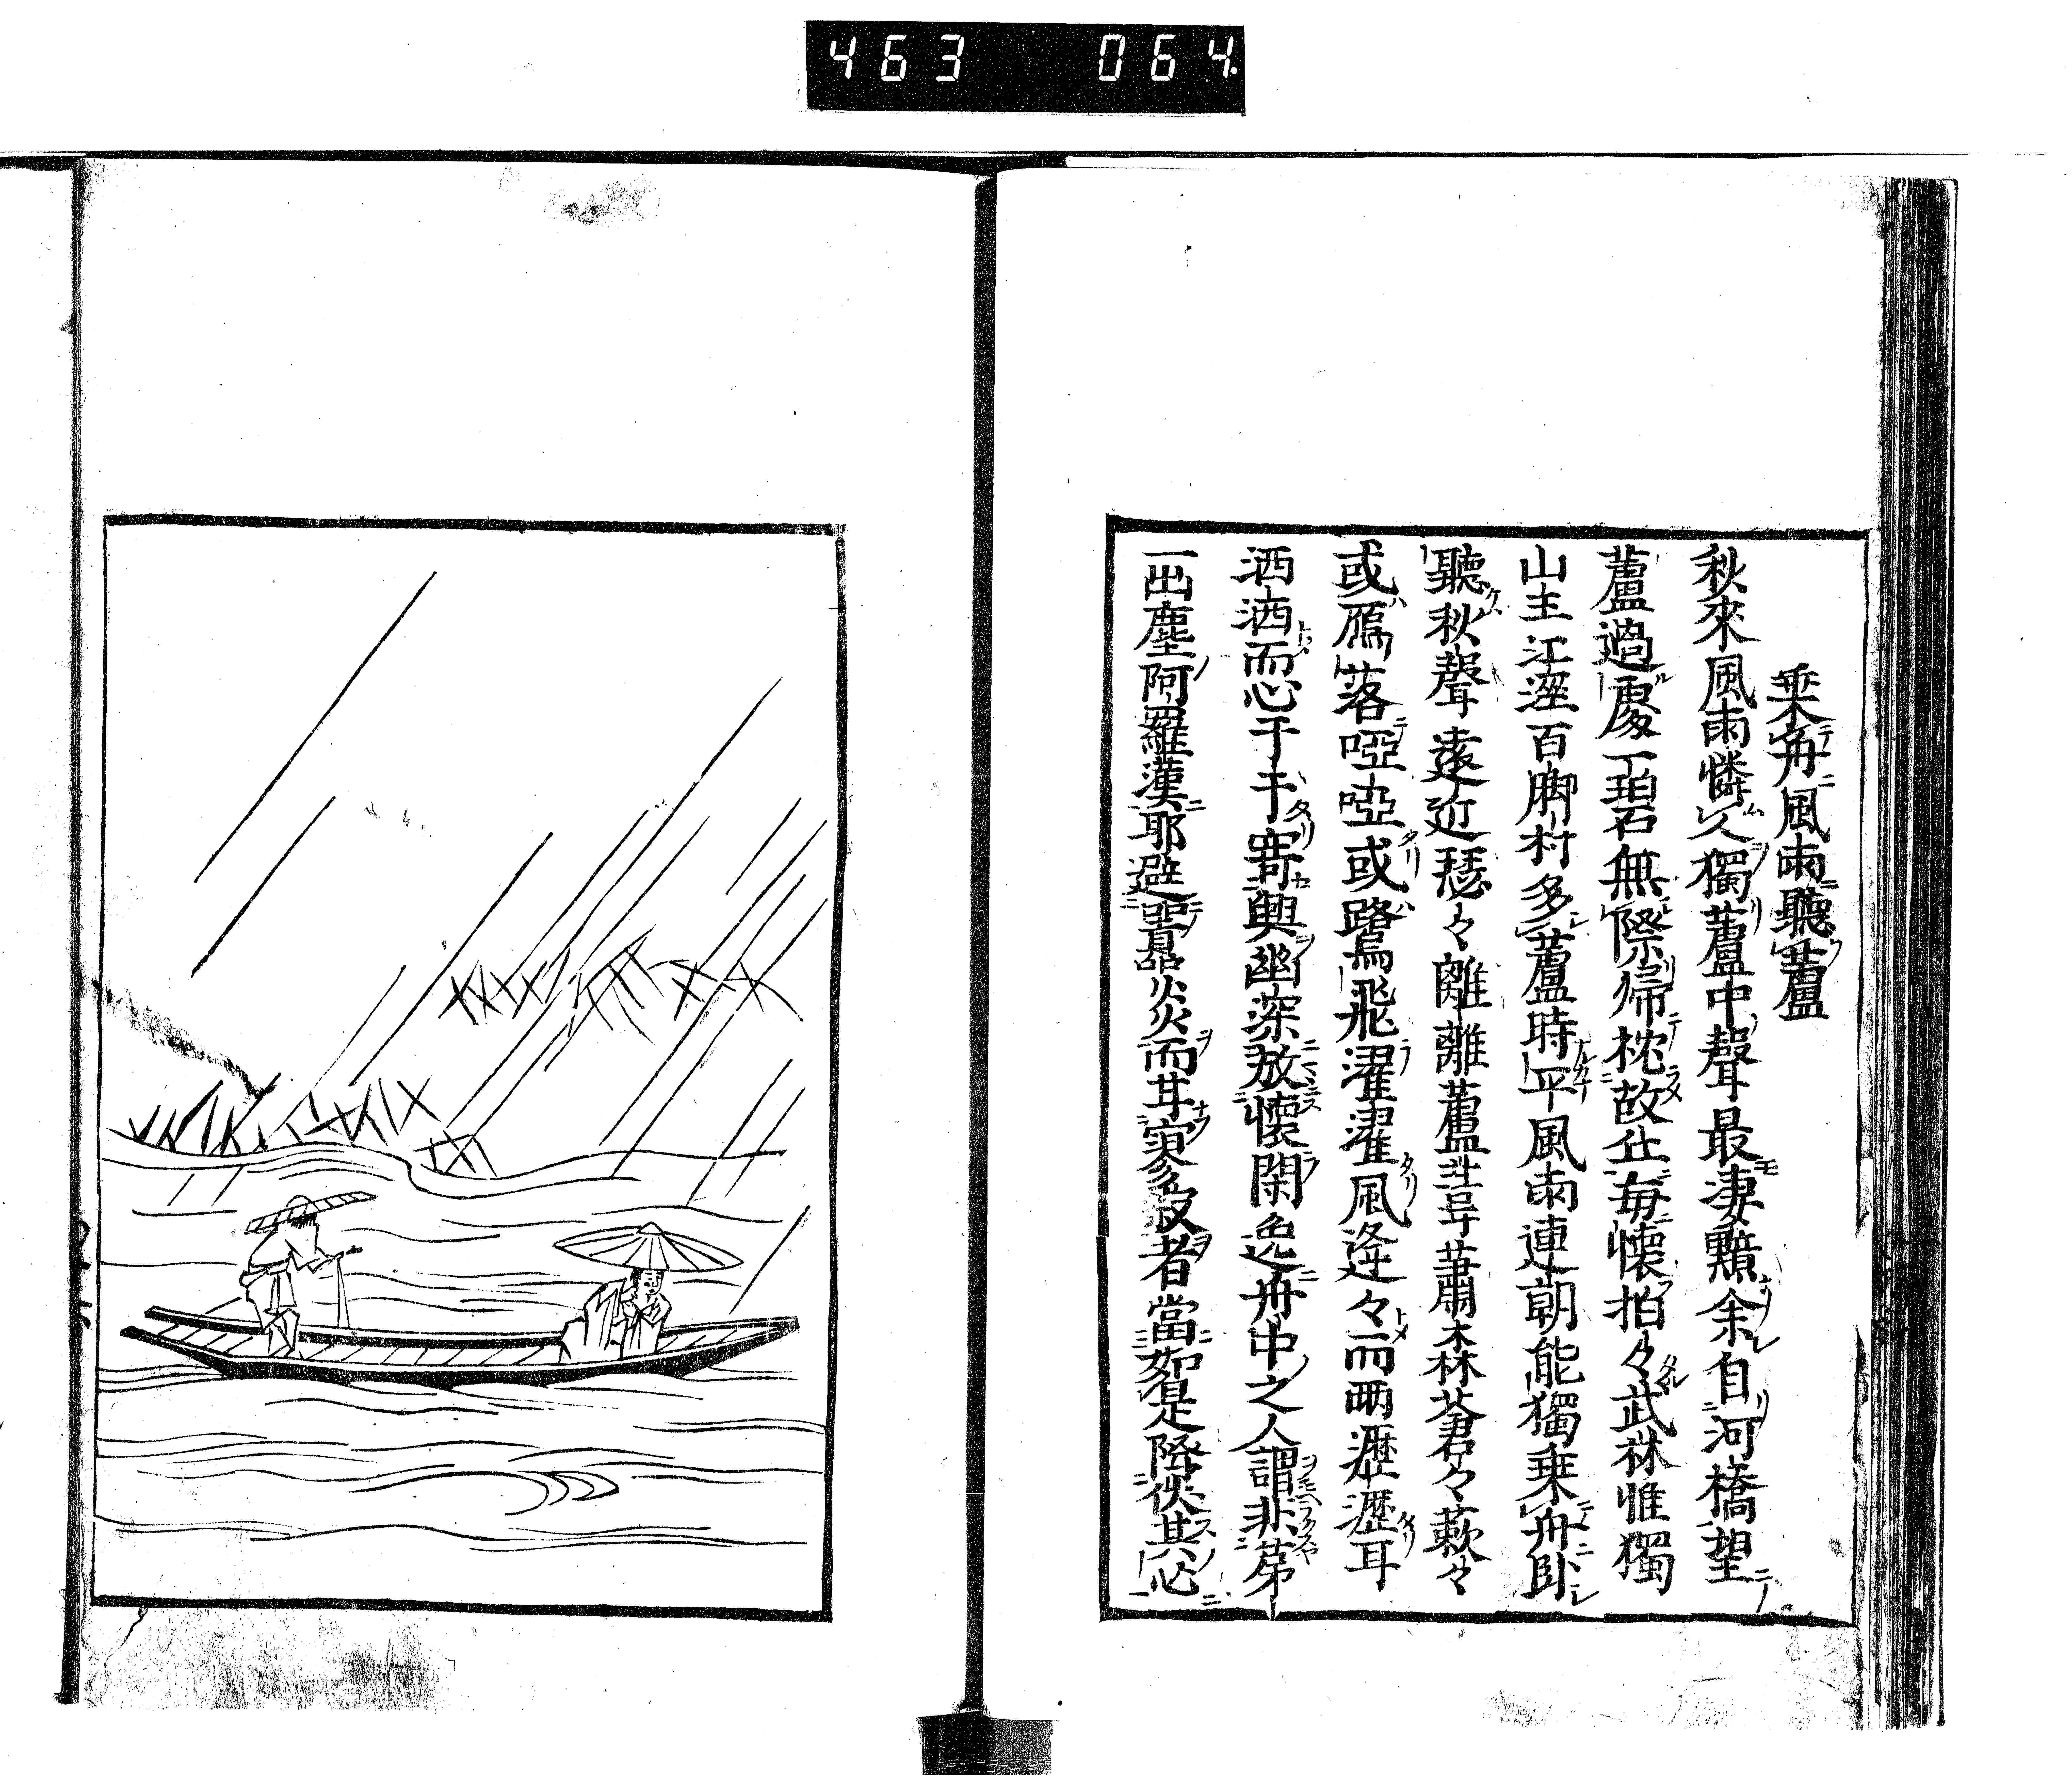 463 064
乗舟風雨聽蘆
秋來風雨憐人獨蘆中聲最凄黯余自河橋望
蘆過處一碧無際歸枕故丘毎懷拍々武林惟獨
山主江涇百脚村多蘆時乎風雨連朝能獨乗舟臥
聽秋聲遠近瑟々離離蘆葦蕭森蒼々蔌々
或鴈落啞啞或鷺飛濯濯風逢々而雨瀝瀝耳
洒洒而心于于寄興幽深放懷閑逸舟中之人謂非第
一出塵阿羅漢耶避囂炎而甘寥寂者當如是降伏其心